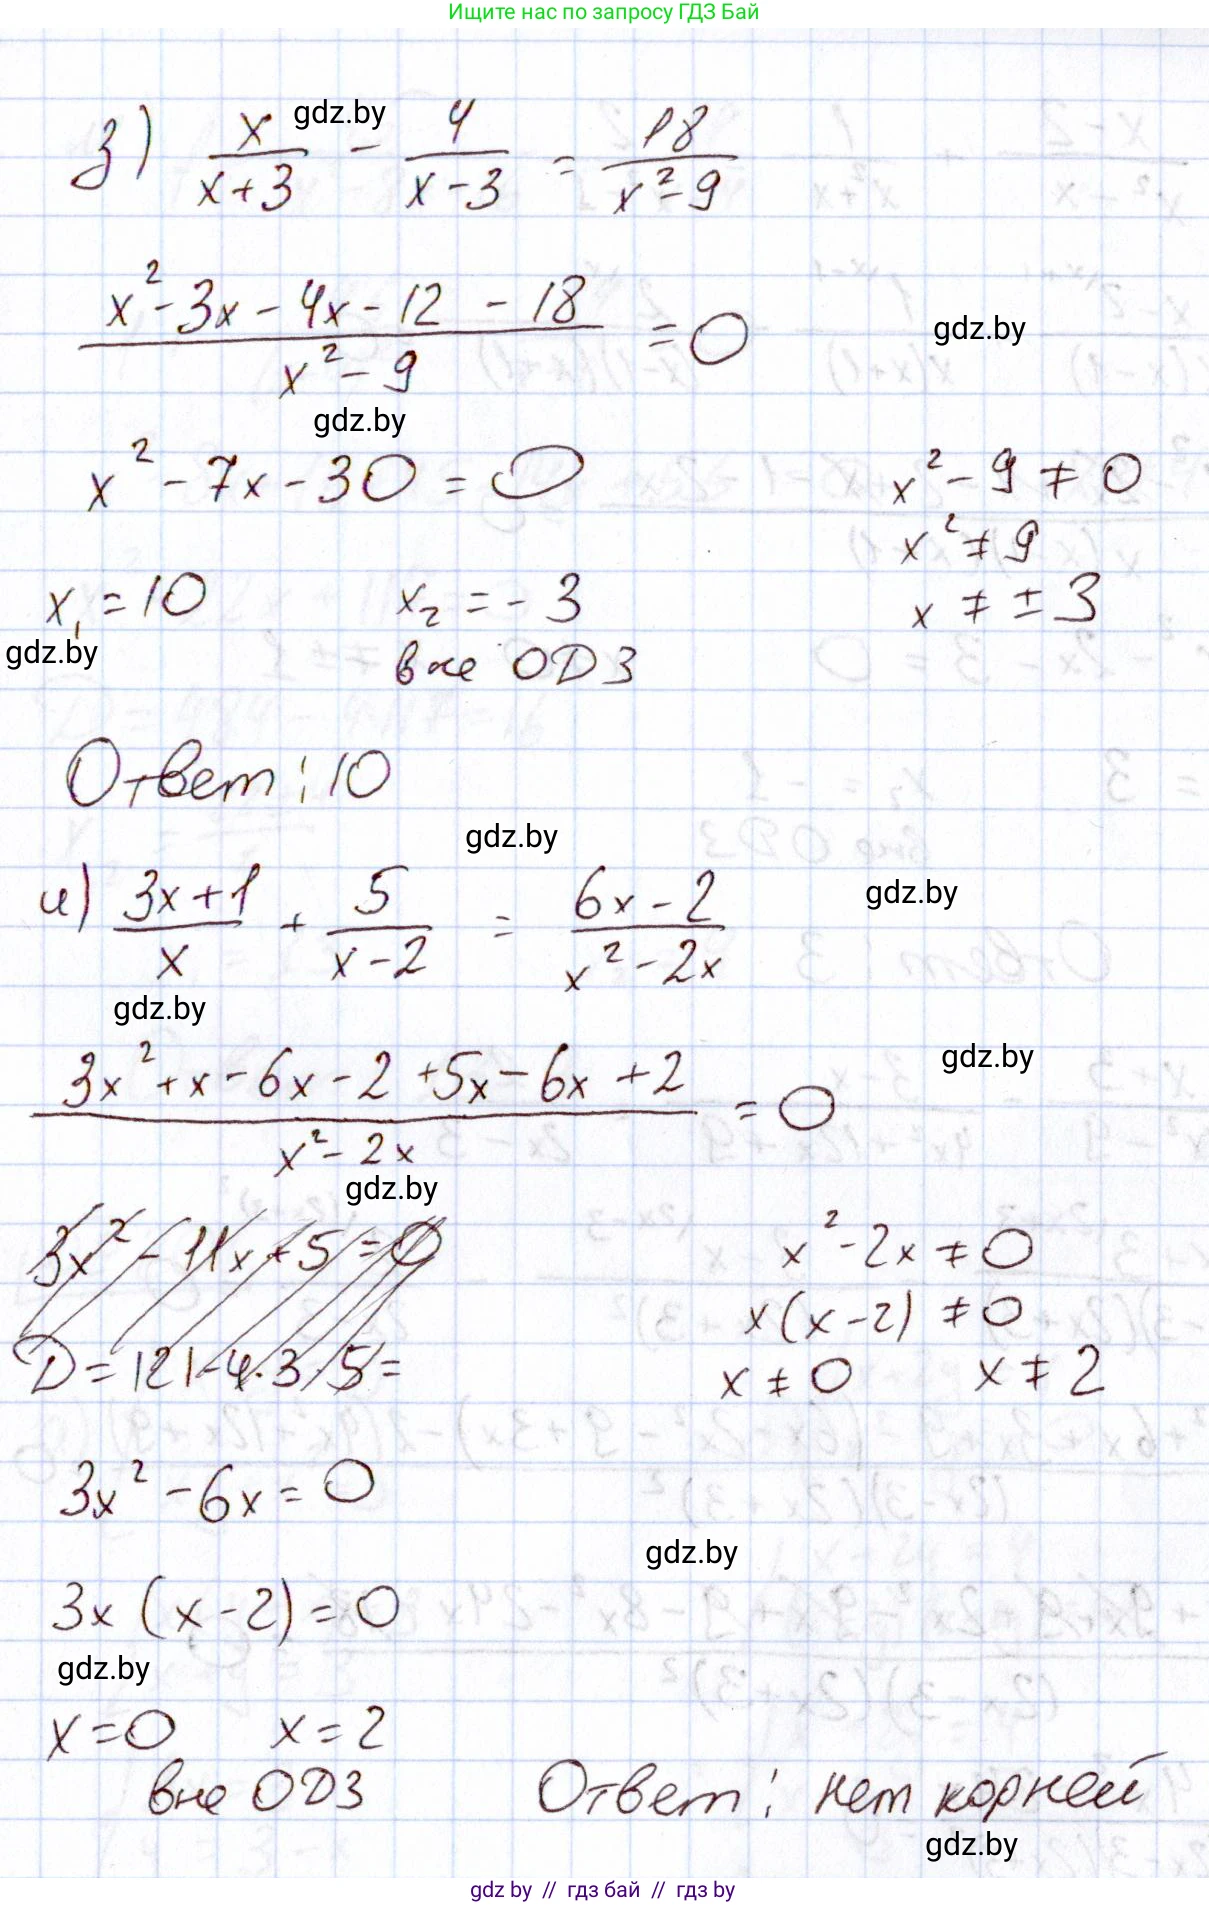 Ищите нас по запросу ГДЗ Бай
з) x/(x+3) - 4/(x-3) = 18/(x²-9)
gdz.by
(x²-3x-4x-12-18)/(x²-9) = 0
gdz.by
gdz.by
x²-7x-30=0
x²-9≠0
x²≠9
x₁=10 x₂=-3
x≠±3
gdz.by
вне ОДЗ
Ответ: 10
gdz.by
и) (3x+1)/x + 5/(x-2) = (6x-2)/(x²-2x)
gdz.by
gdz.by
(3x²+x-6x-2+5x-6x+2)/(x²-2x) = 0
gdz.by
gdz.by
3x²-11x+5=0
x²-2x≠0
x(x-2)≠0
D=121-4·3·5=
x≠0 x≠2
3x²-6x=0
gdz.by
3x(x-2)=0
gdz.by
x=0 x=2
вне ОДЗ
Ответ: нет корней
gdz.by
gdz by // гдз бай // гдз by